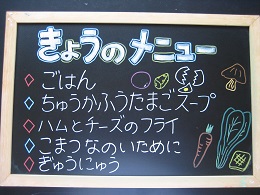 きょうのメニュー
ごはん
ちゅうかふうたまごスープ
ハムとチーズのフライ
こまつなのいために
ぎゅうにゅう